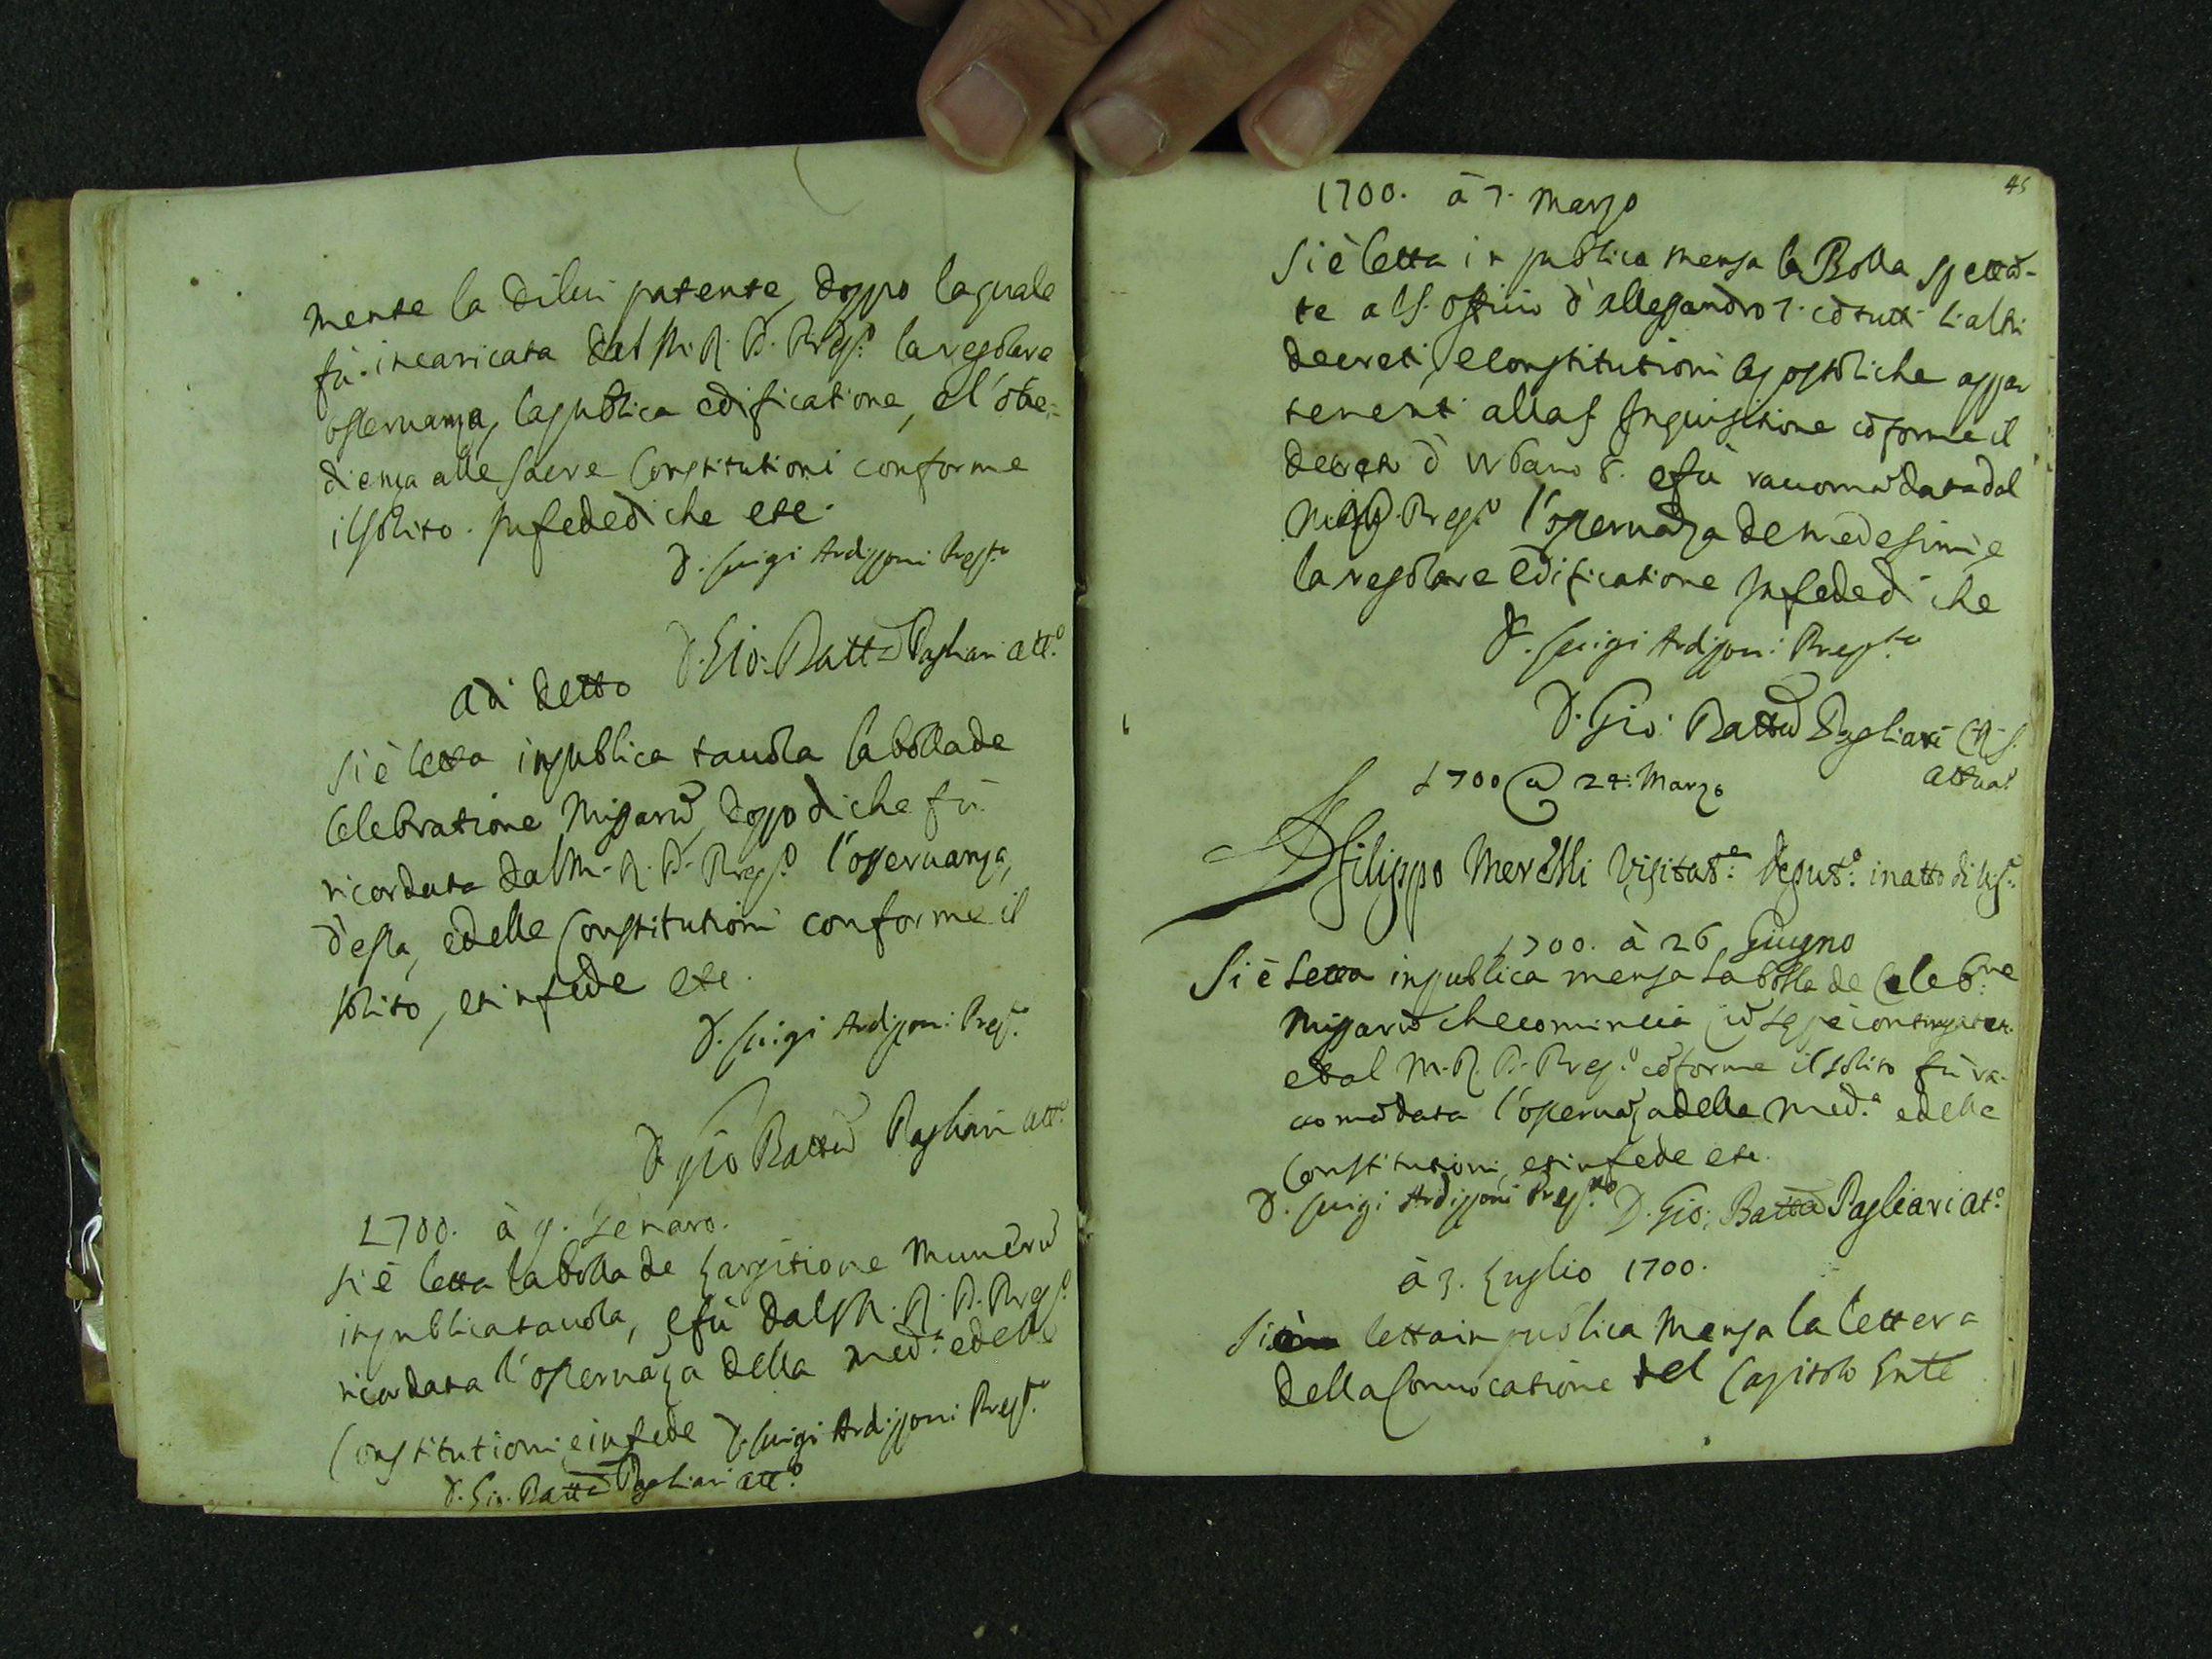 mente la di lui patente, doppo la quale
fù incaricata dal M. R. P. Prep.º la regolare
osservanza, la publica edificatione, el'obe=
dienza alle sacre Constitutioni conforme
il solito. In fede di che etc.
D. Luigi Ardizzoni Prep.to
D. Gio: Batta Pagliari att.º
Adì detto
Si è letta in publica tauola la bolla de
Celebratione Missarū, doppo di che fù
ricordata dal M. R. P. Prep.º l'osseruanza,
d'essa, e delle Constitutioni conforme il
solito, et in fede etc.
D. Luigi Ardizzoni Prep.to
D. Gio Batta Pagliari att.º
1700. à 9. Genaro.
Si è letta la bolla de Largitione Munerū
in publica tauola, e fù dal M. R. P. Prep.º
ricordata l'osseruāza della med.ª e delle
Constitutioni e in fede D. Luigi Ardizzoni Prep.to
D. Gio. Batta Pagliari att.º
45
1700. à 7. Marzo
Si è letta in publica mensa la Bolla spettā-
te al S. Offitio d'Allessandro 7. cō tutti li altri
decreti, e constitutioni Apostoliche appar
tenenti alla S. Inquisitione cōforme il
decreto d'Urbano 8. e fù raccomādata dal
Prep.º l'osseruāza de medesimi, e
la regolare edificatione In fede di che
D. Luigi Ardizzoni Prep.to
D. Gio: Batta Pagliari C. R. S.
attua.º
1700 a 24: Marzo
D Filippo Merelli Visitat.e Deput.º in atto di Vis.ª
1700. à 26 Giugno
Si è letta in publica mensa la bolla de Celeb.ne
Missarū che comincia cū sepe contingat etc.
e dal M. R. P. Prep.º cōforme il solito fù ra-
comādata l'osseruāza della med.ª e delle
Constitutioni, et in fede etc.
D. Luigi Ardizzoni Prep.to D. Gio: Batta Pagliari at.º
à 3. Luglio 1700.
Si è letta in publica Mensa la lettera
della Conuocatione del Capitolo